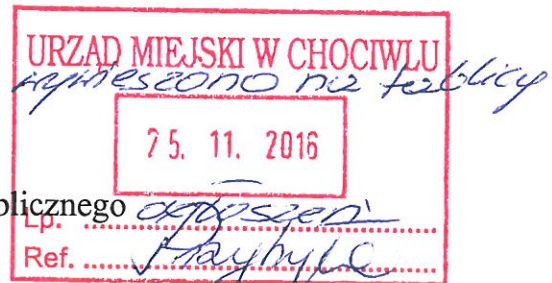 URZĄD MIEJSKI W CHOCIWLU
wywieszono na tablicy
25. 11. 2016
blicznego ogłoszeń
Lp. ....................
Ref. ....................